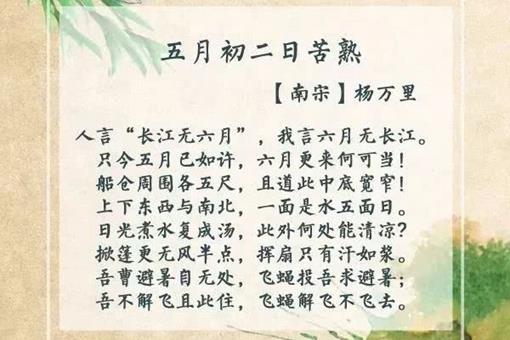 五月初二日苦熟
【南宋】杨万里
人言“长江无六月”，我言六月无长江。
只今五月已如许，六月更来何可当！
船仓周围各五尺，且道此中底宽窄！
上下东西与南北，一面是水五面日。
日光煮水复成汤，此外何处能清凉？
掀篷更无风半点，挥扇只有汗如浆。
吾曹避暑自无处，飞蝇投吾求避暑；
吾不解飞且此住，飞蝇解飞不飞去。